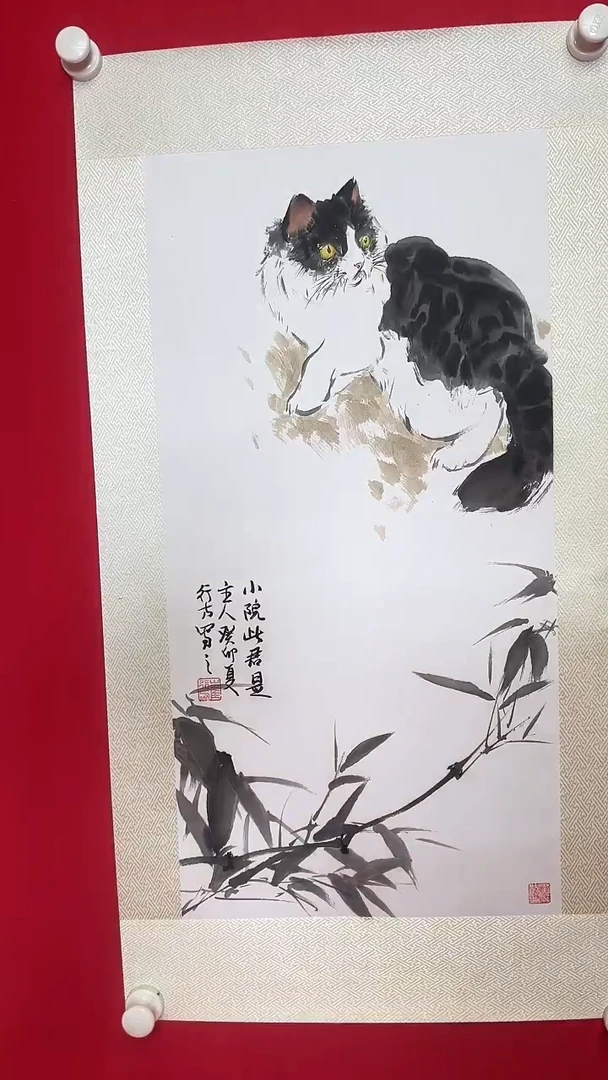 小院此君是
主人癸卯夏
行方写之